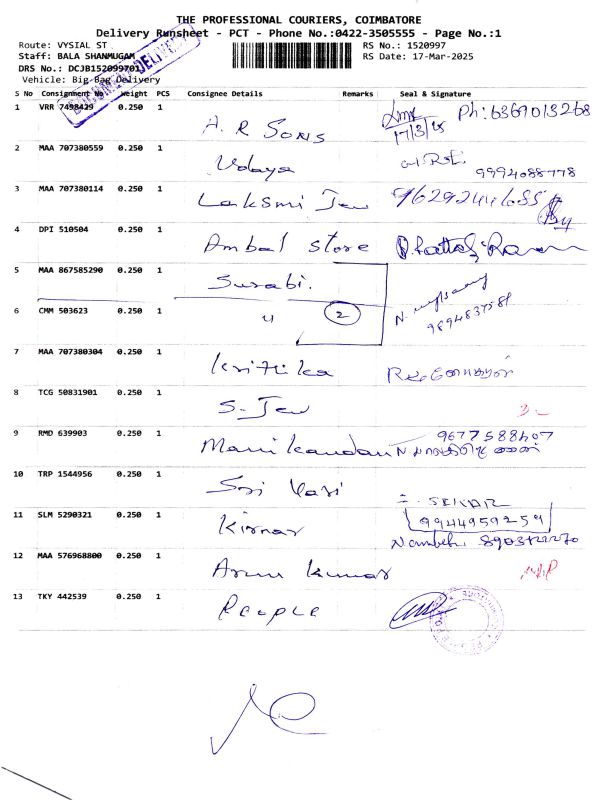 THE PROFESSIONAL COURIERS, COIMBATORE
Delivery Runsheet - PCT - Phone No.:0422-3505555 - Page No.:1
Route: VYSIAL ST .
Staff: BALA SHANMUGAM
DRS No.: DCJB152099701
Vehicle: Big Bag Delivery
RS No.: 1520997
RS Date: 17-Mar-2025
S No Consignment No Weight PCS Consignee Details Remarks Seal & Signature
1 VRR 7498429 0.250 1 A. R SONS 17/3/25 Ph: 6369013268
2 MAA 707380559 0.250 1 Udaya 9994088778
3 MAA 707380114 0.250 1 Laksmi Jew
4 DPI 510504 0.250 1 Ambal Store
5 MAA 867585290 0.250 1 Surabi.
6 CMM 503623 0.250 1 " 2 9894837581
7 MAA 707380304 0.250 1 Krithika
8 TCG 50831901 0.250 1 S. Jew
9 RMD 639903 0.250 1 Manikandan 9677588407
10 TRP 1544956 0.250 1 Sri Hari
11 SLM 5290321 0.250 1 Kirnar SEKAR 9944959259
12 MAA 576968800 0.250 1 Arun Kumar
13 TKY 442539 0.250 1 People